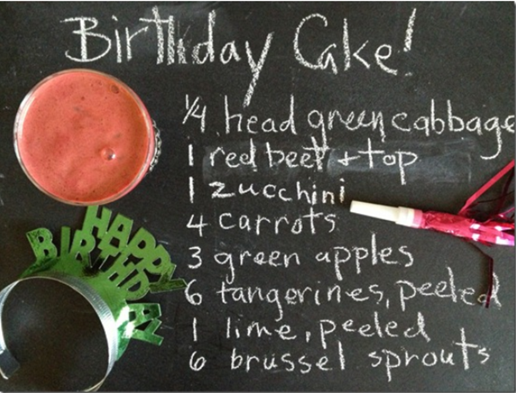 Birthday Cake!
1/4 head green cabbage
1 red beet + top
1 zucchini
4 carrots
3 green apples
6 tangerines, peeled
1 lime, peeled
6 brussel sprouts
HAPPY
BIRTHDAY